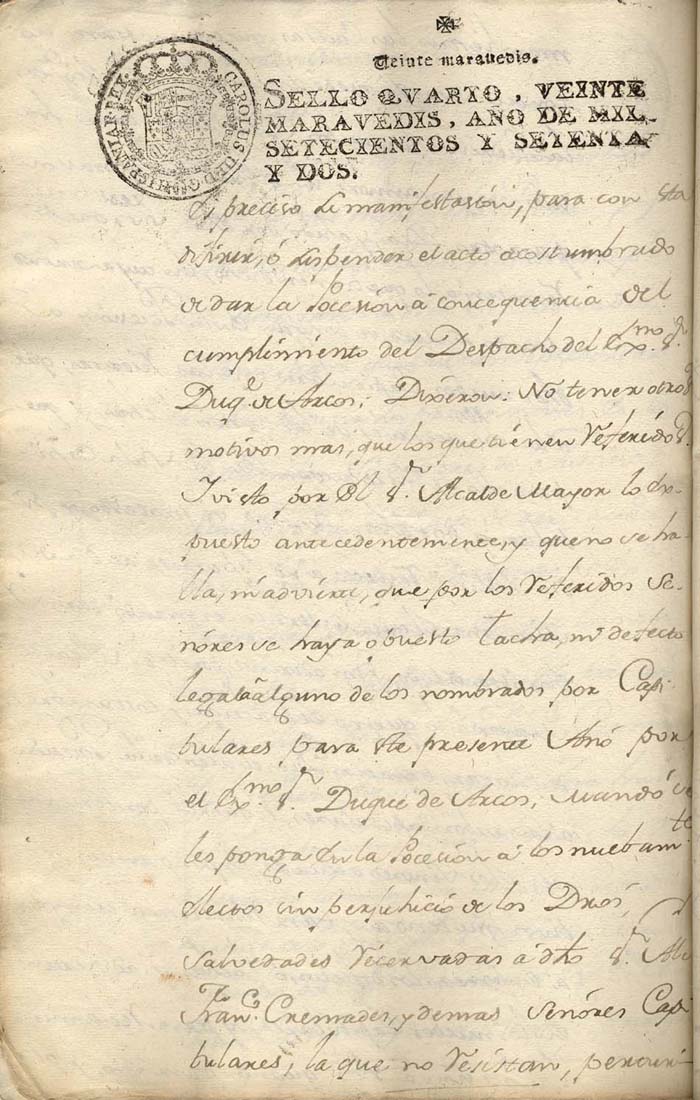 CAROLUS III D.G. HISPANIAR. REX
Veinte maravedis.
SELLO QVARTO, VEINTE
MARAVEDIS, AÑO DE MIL
SETECIENTOS Y SETENTA
Y DOS.
preciso manifestasion, para con sta
diferir, ó suspender el acto acostumbrado
de dar la Pocesion á concequencia del
cumplimiento del Despacho del Exmo. Sr.
Duq.e de Arcos; Dixeron: No tener otros
motivos mas, que los que tienen referido
Y visto por El Sr. Alcalde Mayor lo ex-
puesto antecedentemente, y que no se ha-
lla, ni advierte, que por los referidos Se-
ñores se haya opuesto tacha, ni defecto
legal á alguno de los nombrados por Capi-
tulares para este presente Año por
el Exmo. Sr. Duque de Arcos, mandó se
les ponga en la Pocesion á los nuebamte.
electos sin perjuhicio de los Dros,
salvedades recervadas á dho Sr.
Franc.o Cremades, y demas Señores Capi-
tulares, la que no resistan,